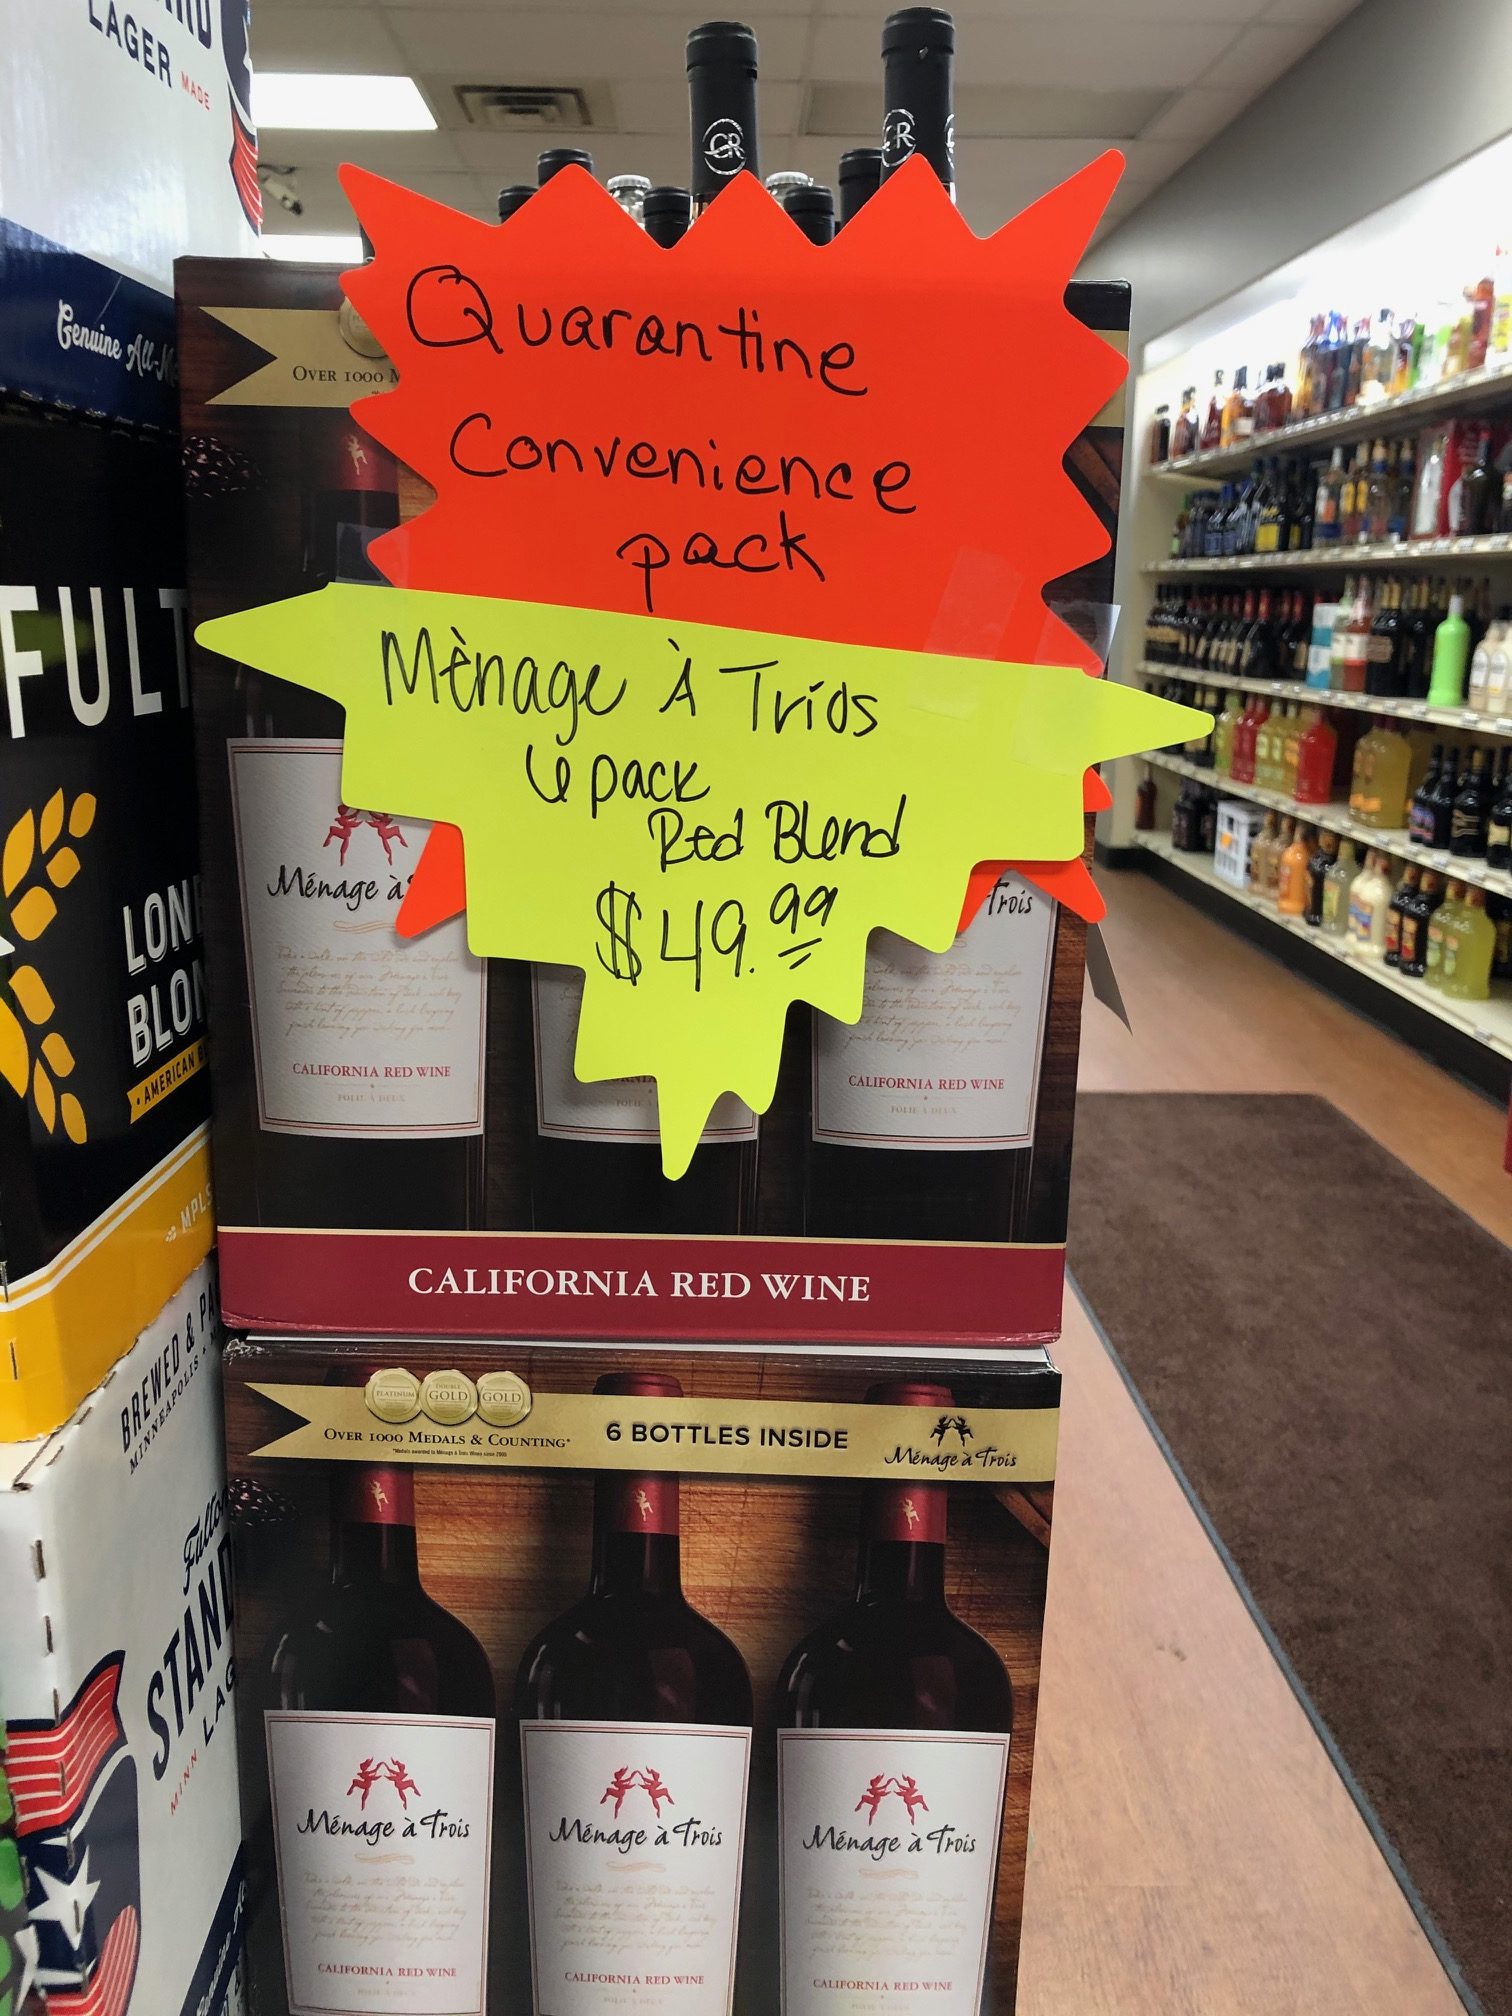 LAGER MADE
Genuine All-M
FULT
LON
BLON
AMERICAN B
MPLS
BREWED & PA
MINNEAPOLIS
Fulton
STAND
MINN LAG
CR
CR
OVER 1000 M
Quarantine
Convenience
pack
Mènage À Triós
6 pack
Red Blend
$49.99
Ménage à
Trois
CALIFORNIA RED WINE
FOLIE À DEUX
CALIFORNIA RED WINE
FOLIE À DEUX
CALIFORNIA RED WINE
PLATINUM
DOUBLE GOLD
GOLD
OVER 1000 MEDALS & COUNTING*
6 BOTTLES INSIDE
Ménage à Trois
Ménage à Trois
Ménage à Trois
Ménage à Trois
CALIFORNIA RED WINE
CALIFORNIA RED WINE
CALIFORNIA RED WINE